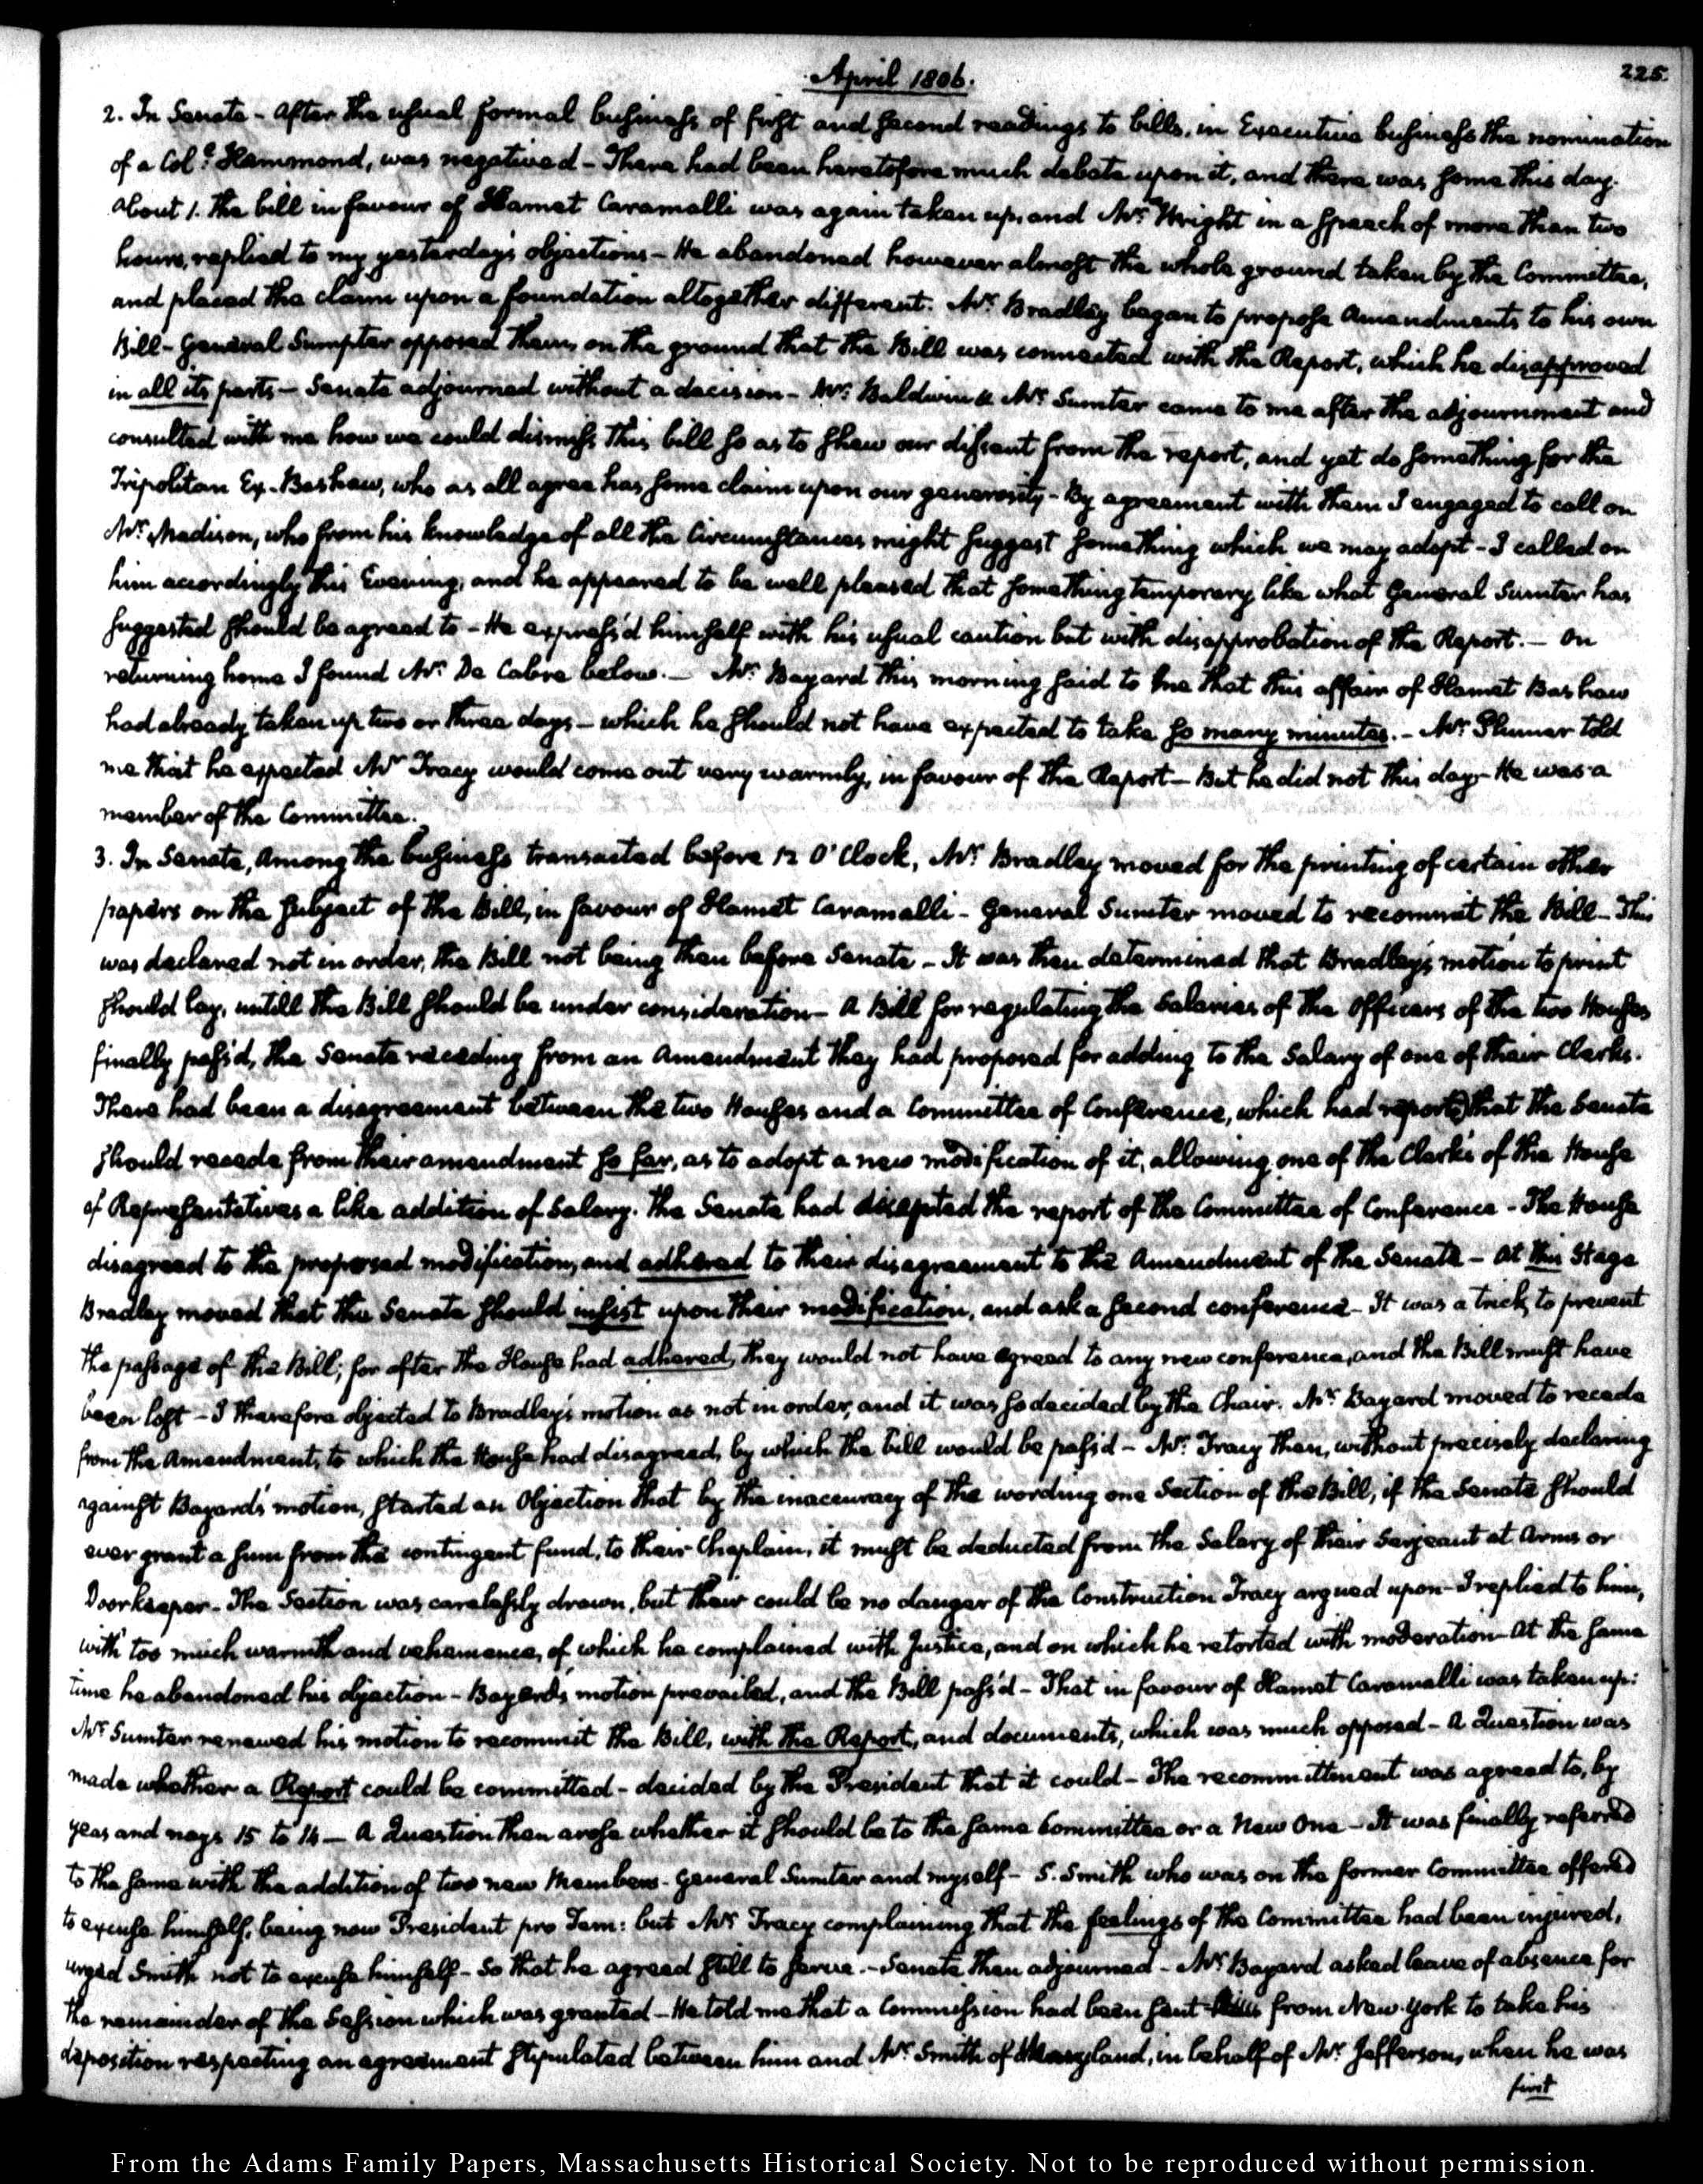 April 1806.
225.
2. In Senate - After the usual formal business of first and second readings to bills, in Executive business the nomination
of a Col.ᵒ Hammond, was negatived - There had been heretofore much debate upon it, and there was some this day.
About 1. the bill in favour of Hamet Caramalli was again taken up, and Mr. Wright in a speech of more than two
hours, replied to my yesterday's objections - He abandoned however almost the whole ground taken by the Committee,
and placed the claim upon a foundation altogether different. Mr. Bradley began to propose Amendments to his own
Bill - General Sumpter opposed them, on the ground that the Bill was connected with the Report, which he disapproved
in all its parts - Senate adjourned without a decision - Mr. Baldwin & Mr. Sumter came to me after the adjournment and
consulted with me how we could dismiss this bill so as to shew our dissent from the report, and yet do something for the
Tripolitan Ex-Bashaw, who as all agree has some claim upon our generosity - By agreement with them I engaged to call on
Mr. Madison, who from his knowledge of all the Circumstances might suggest something which we may adopt - I called on
him accordingly this Evening, and he appeared to be well pleased that something temporary like what General Sumter has
suggested should be agreed to - He express'd himself with his usual caution but with disapprobation of the Report. - On
returning home I found Mr. De Cabre below. - Mr. Bayard this morning said to me that this affair of Hamet Bashaw
had already taken up two or three days - which he should not have expected to take so many minutes. - Mr. Plumer told
me that he expected Mr. Tracy would come out very warmly, in favour of the Report - But he did not this day - He was a
member of the Committee.
3. In Senate, Among the business transacted before 12 O'Clock, Mr. Bradley moved for the printing of certain other
papers on the subject of the Bill, in favour of Hamet Caramalli - General Sumter moved to recommit the Bill - This
was declared not in order, the Bill not being then before Senate - It was then determined that Bradley's motion to print
should lay, untill the Bill should be under consideration - A Bill for regulating the Salaries of the Officers of the two Houses
finally pass'd, the Senate receding from an Amendment they had proposed for adding to the Salary of one of their Clerks.
There had been a disagreement between the two Houses and a Committee of Conference, which had reported that the Senate
should recede from their amendment so far, as to adopt a new modification of it, allowing one of the Clerks of the House
of Representatives a like addition of Salary. The Senate had accepted the report of the Committee of Conference - The House
disagreed to the proposed modification, and adhered to their disagreement to the Amendment of the Senate - At this Stage
Bradley moved that the Senate should insist upon their modification, and ask a second conference - It was a trick, to prevent
the passage of the Bill; for after the House had adhered, they would not have agreed to any new conference, and the Bill must have
been lost - I therefore objected to Bradley's motion as not in order, and it was so decided by the Chair. Mr. Bayard moved to recede
from the Amendment, to which the House had disagreed, by which the bill would be pass'd - Mr. Tracy then, without precisely declaring
against Bayard's motion, started an Objection that by the inaccuracy of the wording one Section of the Bill, if the Senate should
ever grant a sum from the contingent fund, to their Chaplain, it must be deducted from the Salary of their Serjeant at Arms or
Doorkeeper - The Section was carelessly drawn, but there could be no danger of the Construction Tracy argued upon - I replied to him,
with too much warmth and vehemence, of which he complained with Justice, and on which he retorted with moderation - At the same
time he abandoned his objection - Bayard's motion prevailed, and the Bill pass'd - That in favour of Hamet Caramalli was taken up:
Mr. Sumter renewed his motion to recommit the Bill, with the Report, and documents, which was much opposed - A Question was
made whether a Report could be committed - decided by the President that it could - The recommittment was agreed to, by
yeas and nays 15 to 14 - A Question then arose whether it should be to the same Committee or a New One - It was finally referred
to the same with the addition of two new Members - General Sumter and myself - S. Smith who was on the former Committee offered
to excuse himself, being now President pro Tem: but Mr. Tracy complaining that the feelings of the Committee had been injured,
urged Smith not to excuse himself - So that he agreed still to serve. - Senate then adjourned - Mr. Bayard asked leave of absence for
the remainder of the Session which was granted - He told me that a Commission had been sent from New-York to take his
deposition respecting an agreement stipulated between him and Mr. Smith of Maryland, in behalf of Mr. Jefferson, when he was
first
From the Adams Family Papers, Massachusetts Historical Society. Not to be reproduced without permission.